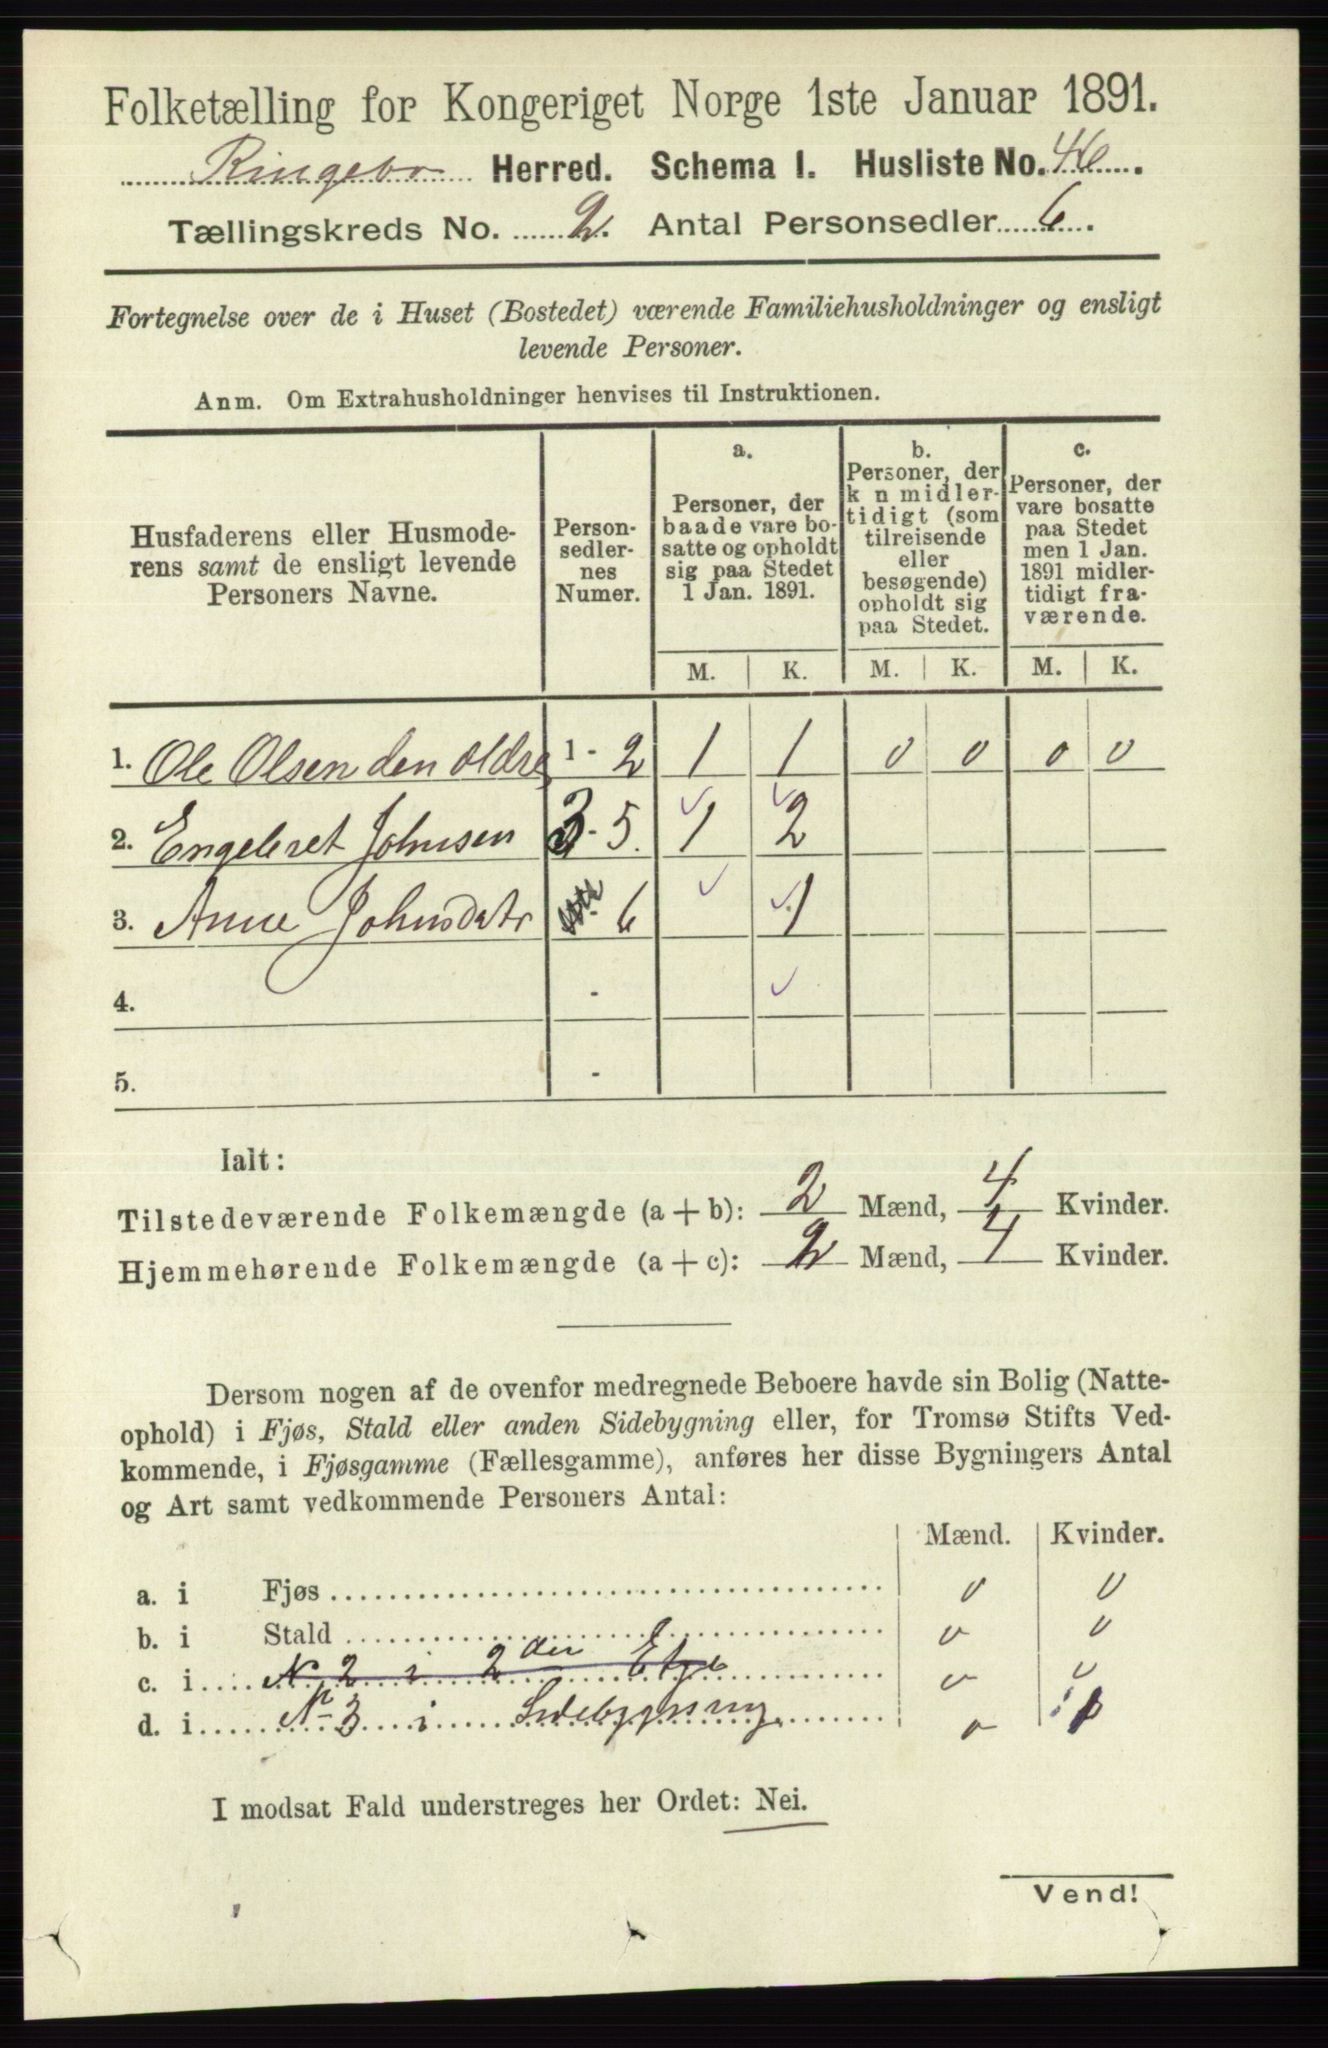 Folketælling for Kongeriget Norge 1ste Januar 1891.
Ringebo Herred. Schema I. Husliste No. 46.
Tællingskreds No. 2. Antal Personsedler 6.
Fortegnelse over de i Huset (Bostedet) værende Familiehusholdninger og ensligt
levende Personer.
Anm. Om Extrahusholdninger henvises til Instruktionen.
Husfaderens eller Husmode-
rens samt de ensligt levende
Personers Navne.
Person-
sedler-
nes
Numer.
a.
Personer, der
baade vare bo-
satte og opholdt
sig paa Stedet
1 Jan. 1891.
b.
Personer, der
k n midler-
tidigt (som
tilreisende
eller
besøgende)
opholdt sig
paa Stedet.
c.
Personer, der
vare bosatte
paa Stedet
men 1 Jan.
1891 midler-
tidigt fra-
værende.
M. K. M. K. M. K.
1. Ole Olsen den oldre 1 - 2 1 1 0 0 0 0
2. Engebret Johnsen 3 - 5. 1 2
3. Anne Johnsdatr 6 1
4. -
5. -
Ialt:
Tilstedeværende Folkemængde (a + b): 2 Mænd, 4 Kvinder.
Hjemmehørende Folkemængde (a + c): 2 Mænd, 4 Kvinder.
Dersom nogen af de ovenfor medregnede Beboere havde sin Bolig (Natte-
ophold) i Fjøs, Stald eller anden Sidebygning eller, for Tromsø Stifts Ved-
kommende, i Fjøsgamme (Fællesgamme), anføres her disse Bygningers Antal
og Art samt vedkommende Personers Antal:
Mænd. Kvinder.
a. i Fjøs 0 0
b. i Stald 0 0
c. i N 2 i 2 den Etge 0 0
d. i N 3 i Sidebygning 0
I modsat Fald understreges her Ordet: Nei.
Vend!